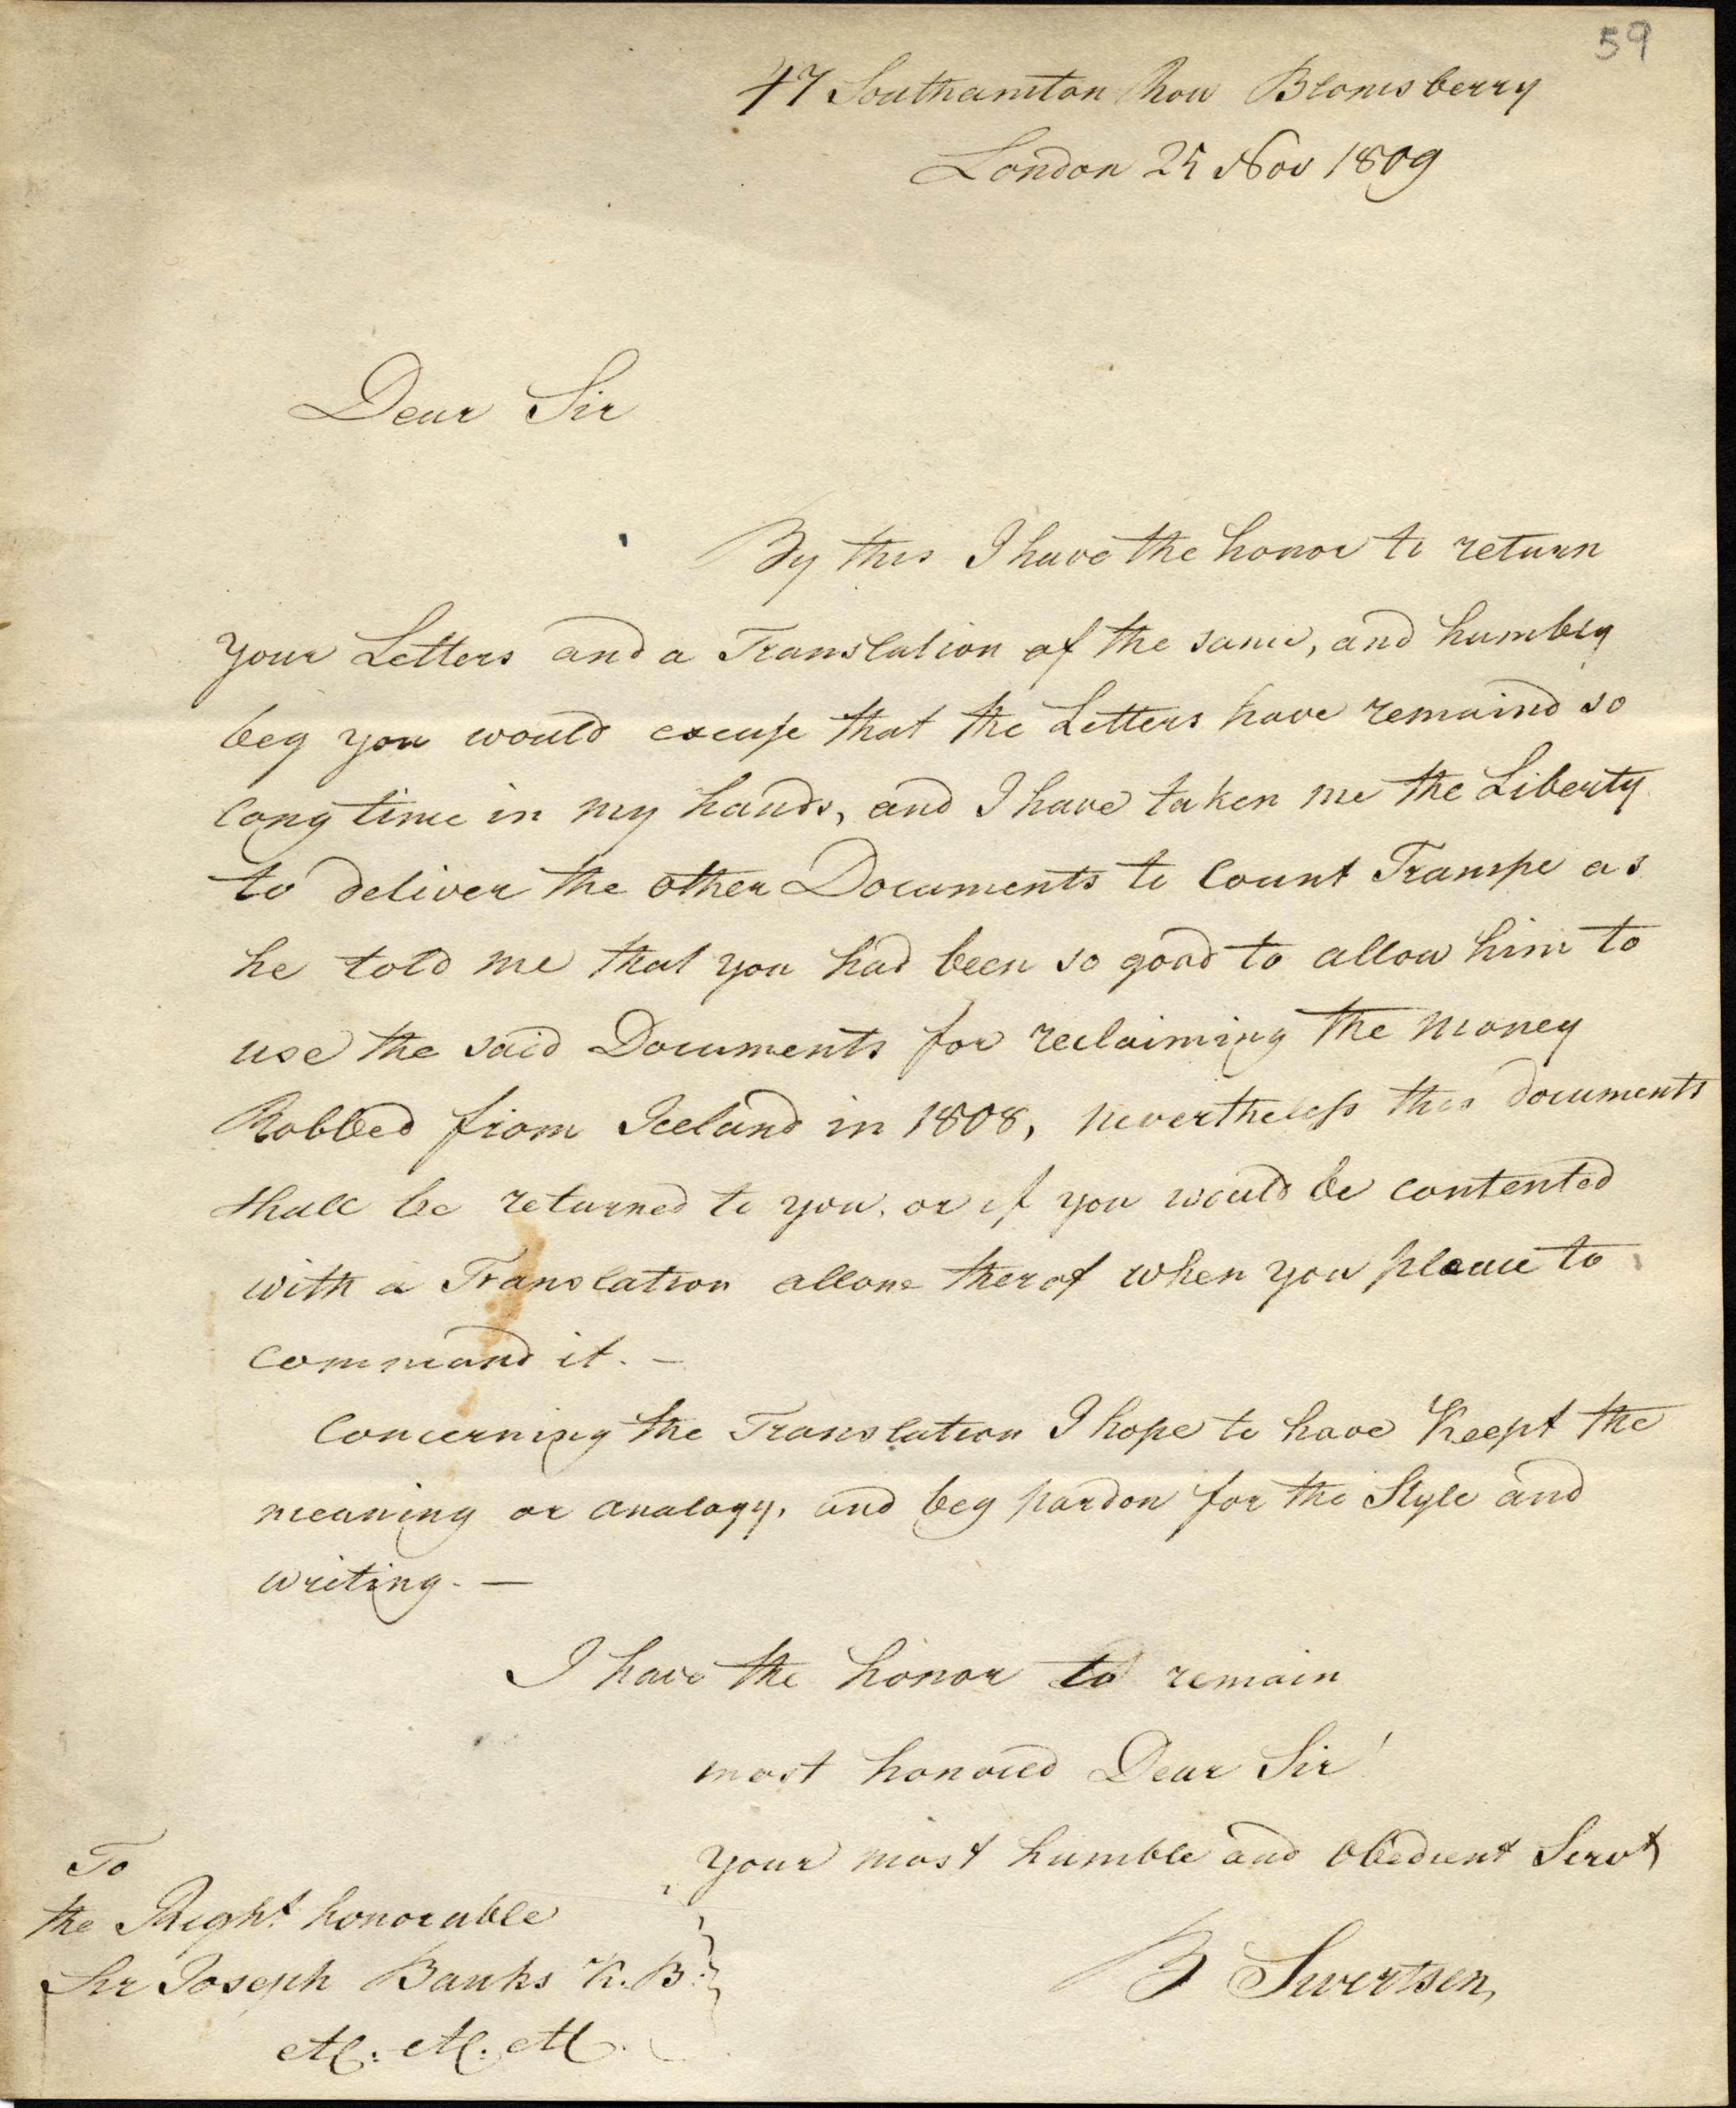 59
47 Southamton Row Blomsberry
London 25 Nov 1809
Dear Sir
By this I have the honor to return
your Letters and a Translation of the same, and humbly
beg you would excuse that the Letters have remaind so
long time in my hands, and I have taken me the Liberty
to deliver the other Documents to Count Trampe as
he told me that you had been so good to allow him to
use the said Documents for reclaiming the money
Robbed from Iceland in 1808, nevertheless this documents
shall be returned to you, or if you would be contented
with a Translation allone therof when you please to
command it. —
Concerning the Translation I hope to have Keept the
meaning or analogy, and beg pardon for the Style and
writing. —
I have the honor to remain
most honored Dear Sir!
your most humble and obedient Servt
B Sivertsen,
To
the Right honorable
Sir Joseph Banks K.B:
etc: etc: etc.